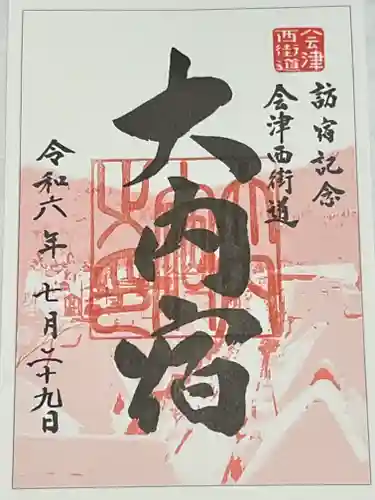 訪宿記念
会津西街道
会津
西街道
大内宿
令和六年七月二十九日